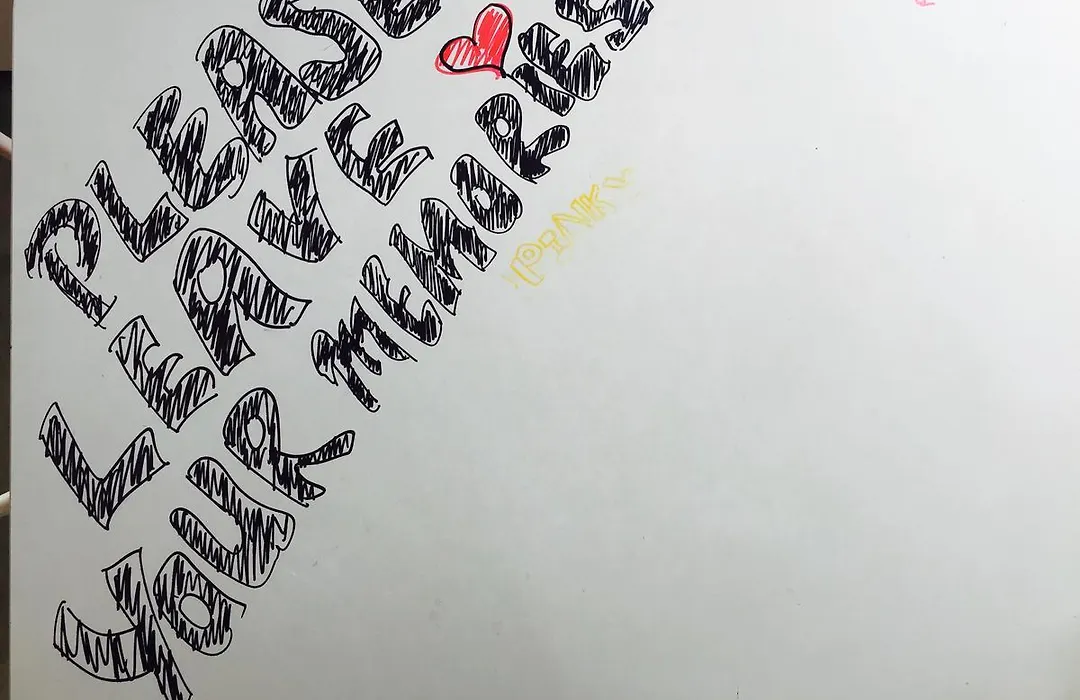 PLEASE
LEAVE
YOUR MEMORIES
PINK